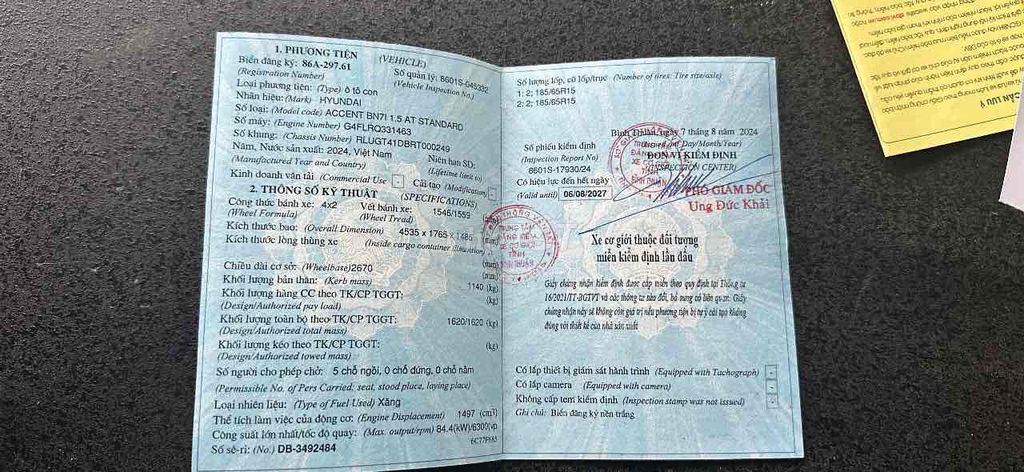 1. PHƯƠNG TIỆN (VEHICLE)
Biển đăng ký: 86A-297.61 Số quản lý: 8601S-045332
(Registration Number) (Vehicle Inspection No.)
Loại phương tiện: (Type) ô tô con
Nhãn hiệu: (Mark) HYUNDAI
Số loại: (Model code) ACCENT BN7I 1.5 AT STANDARD
Số máy: (Engine Number) G4FLRQ331463
Số khung: (Chassis Number) RLUGT41DBRT000249
Năm, Nước sản xuất: 2024, Việt Nam Niên hạn SD:
(Manufactured Year and Country) (Lifetime limit to)
Kinh doanh vận tải (Commercial Use - Cải tạo (Modification) -
2. THÔNG SỐ KỸ THUẬT (SPECIFICATIONS)
Công thức bánh xe: 4x2 Vết bánh xe: 1545/1559
(Wheel Formula) (Wheel Tread)
Kích thước bao: (Overall Dimension) 4535 x 1765 x 1485 (mm)
Kích thước lòng thùng xe (Inside cargo container dimension)
(mm)
Chiều dài cơ sở: (Wheelbase)2670 (mm)
Khối lượng bản thân: (Kerb mass) 1140 (kg)
Khối lượng hàng CC theo TK/CP TGGT: (kg)
(Design/Authorized pay load)
Khối lượng toàn bộ theo TK/CP TGGT: 1620/1620 (kg)
(Design/Authorized total mass)
Khối lượng kéo theo TK/CP TGGT: (kg)
(Design/Authorized towed mass)
Số người cho phép chở: 5 chỗ ngồi, 0 chỗ đứng, 0 chỗ nằm
(Permissible No. of Pers Carried: seat, stood place, laying place)
Loại nhiên liệu: (Type of Fuel Used) Xăng
Thể tích làm việc của động cơ: (Engine Displacement) 1497 (cm³)
Công suất lớn nhất/tốc độ quay: (Max. output/rpm) 84.4(kW)/6300vp
Số sê-ri: (No.) DB-3492484
Số lượng lốp, cỡ lốp/trục (Number of tires: Tire size/axle)
1: 2; 185/65R15
2: 2; 185/65R15
Bình Thuận, ngày 7 tháng 8 năm 2024
Số phiếu kiểm định (Issued on: Day/Month/Year)
(Inspection Report No) ĐƠN VỊ KIỂM ĐỊNH
8601S-17930/24 (INSPECTION CENTER)
Có hiệu lực đến hết ngày
(Valid until) 06/08/2027
PHÓ GIÁM ĐỐC
Ung Đức Khải
Xe cơ giới thuộc đối tượng
miễn kiểm định lần đầu
Giấy chứng nhận kiểm định được cấp miễn theo quy định tại Thông tư
16/2021/TT-BGTVT và các thông tư sửa đổi, bổ sung có liên quan. Giấy
chứng nhận này sẽ không còn giá trị nếu phương tiện bị tự ý cải tạo không
đúng với thiết kế của nhà sản xuất
Có lắp thiết bị giám sát hành trình (Equipped with Tachograph) -
Có lắp camera (Equipped with camera) -
Không cấp tem kiểm định (Inspection stamp was not issued) -
Ghi chú: Biển đăng ký nền trắng
TRUNG TÂM
ĐĂNG KIỂM
XE CƠ GIỚI
TỈNH
BÌNH THUẬN